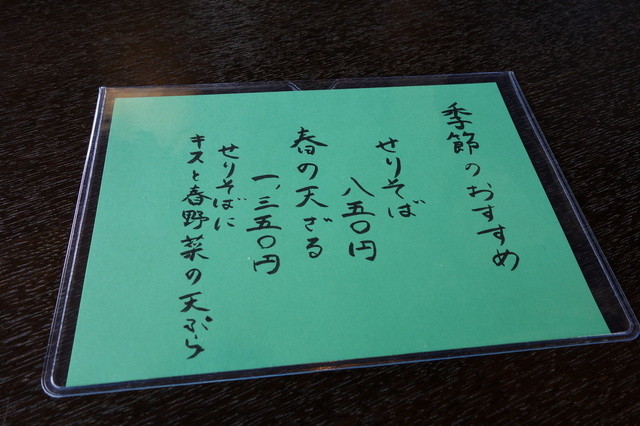 季節のおすすめ
せりそば
八五〇円
春の天ざる
一、三五〇円
せりそばに
キスと春野菜の天ぷら